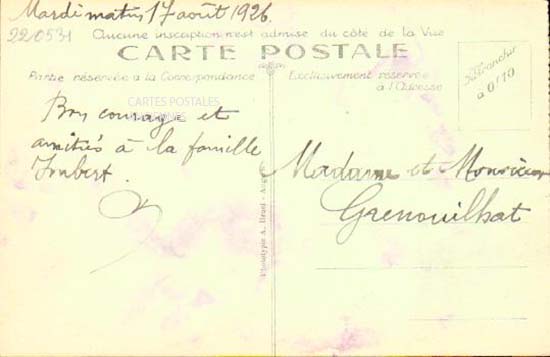 Mardi matin 17 août 1926.
220531
Aucune inscription n'est admise du côté de la Vue
CARTE POSTALE
Partie réservée à la Correspondance
Exclusivement réservée
à l'Adresse
Affranchir
à 0f10
CARTES POSTALES
Bon courage et
amitiés à la famille
Imbert.
Madame et Monsieur
Grenouilhat
Phototypie A.